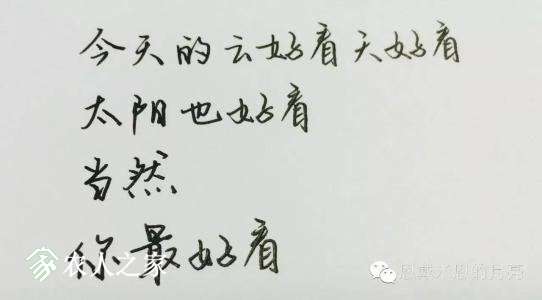 今天的云好看天好看
太阳也好看
当然
你最好看
农人之家